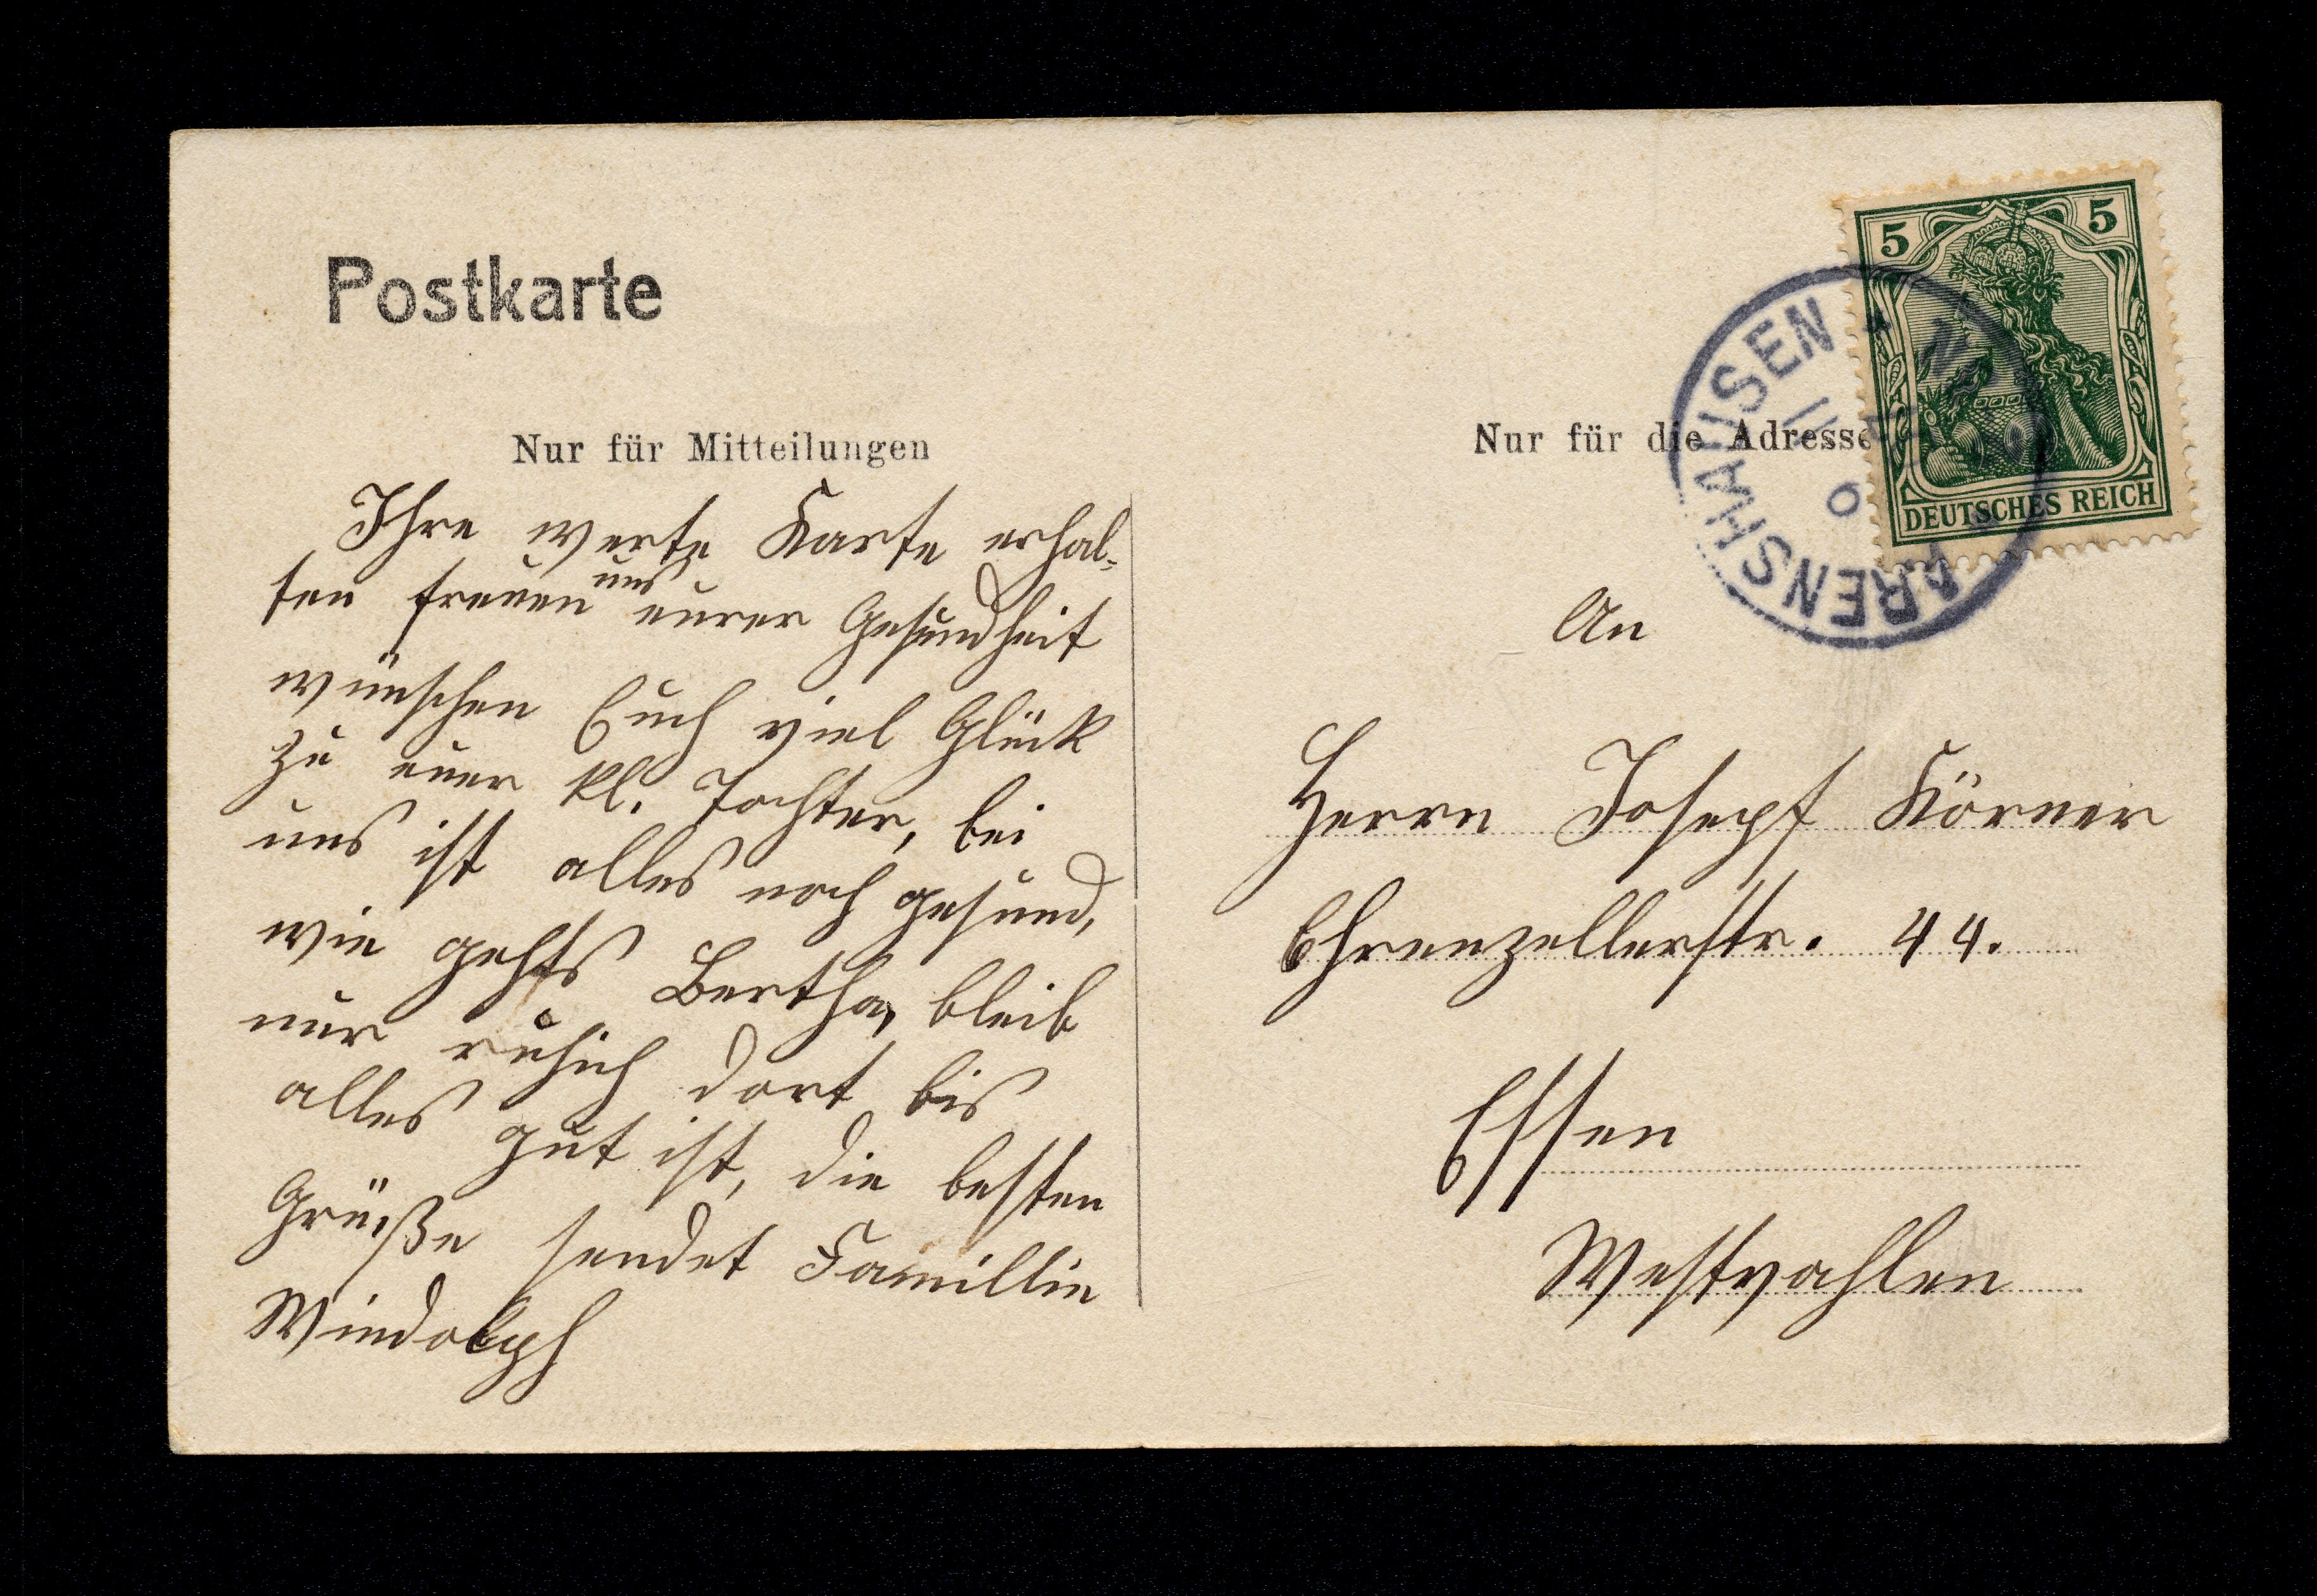 Postkarte
Nur für Mitteilungen
Ihre werte Karte erhal-
ten freuen uns eurer Gesundheit
wünschen Euch viel Glück
zu euer kl. Tochter, bei
uns ist alles noch gesund,
wie gehts Bertha, bleib
nur ruhich dort bis
alles gut ist, die besten
Grüße sendet Famillie
Windolph
5 5
DEUTSCHES REICH
ARENSHAUSEN
Nur für die Adresse
An
Herrn Josepf Körner
Ehrenzellerstr. 44.
Essen
Westvahlen